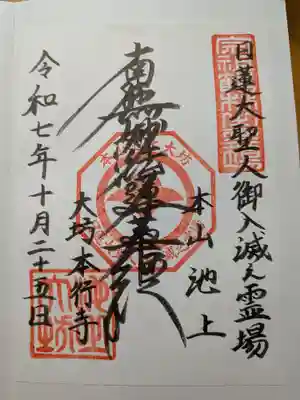 日蓮大聖人御入滅之霊場
本山 池上
南無妙法蓮華経
大坊 本行寺
令和七年十月二十五日